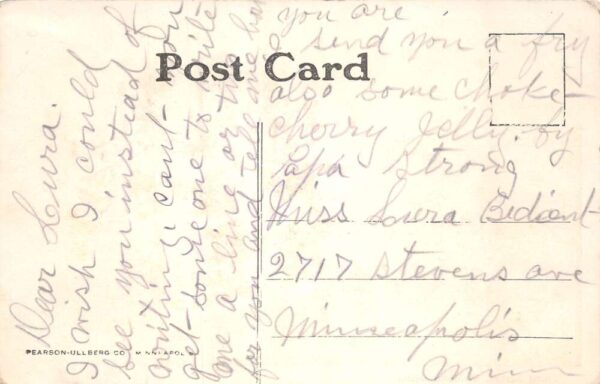 Post Card
Dear Lura.
I wish I could
see you instead of
writing. cant- you
get- someone to write
me a line or two
for you and tell me how
you are.
I send you a fry
also some choke-
cherry Jelly. by
Papa Strong
Miss Lura Bedient
2717 Stevens ave
Minneapolis
Minn
PEARSON-ULLBERG CO. MINNEAPOLIS